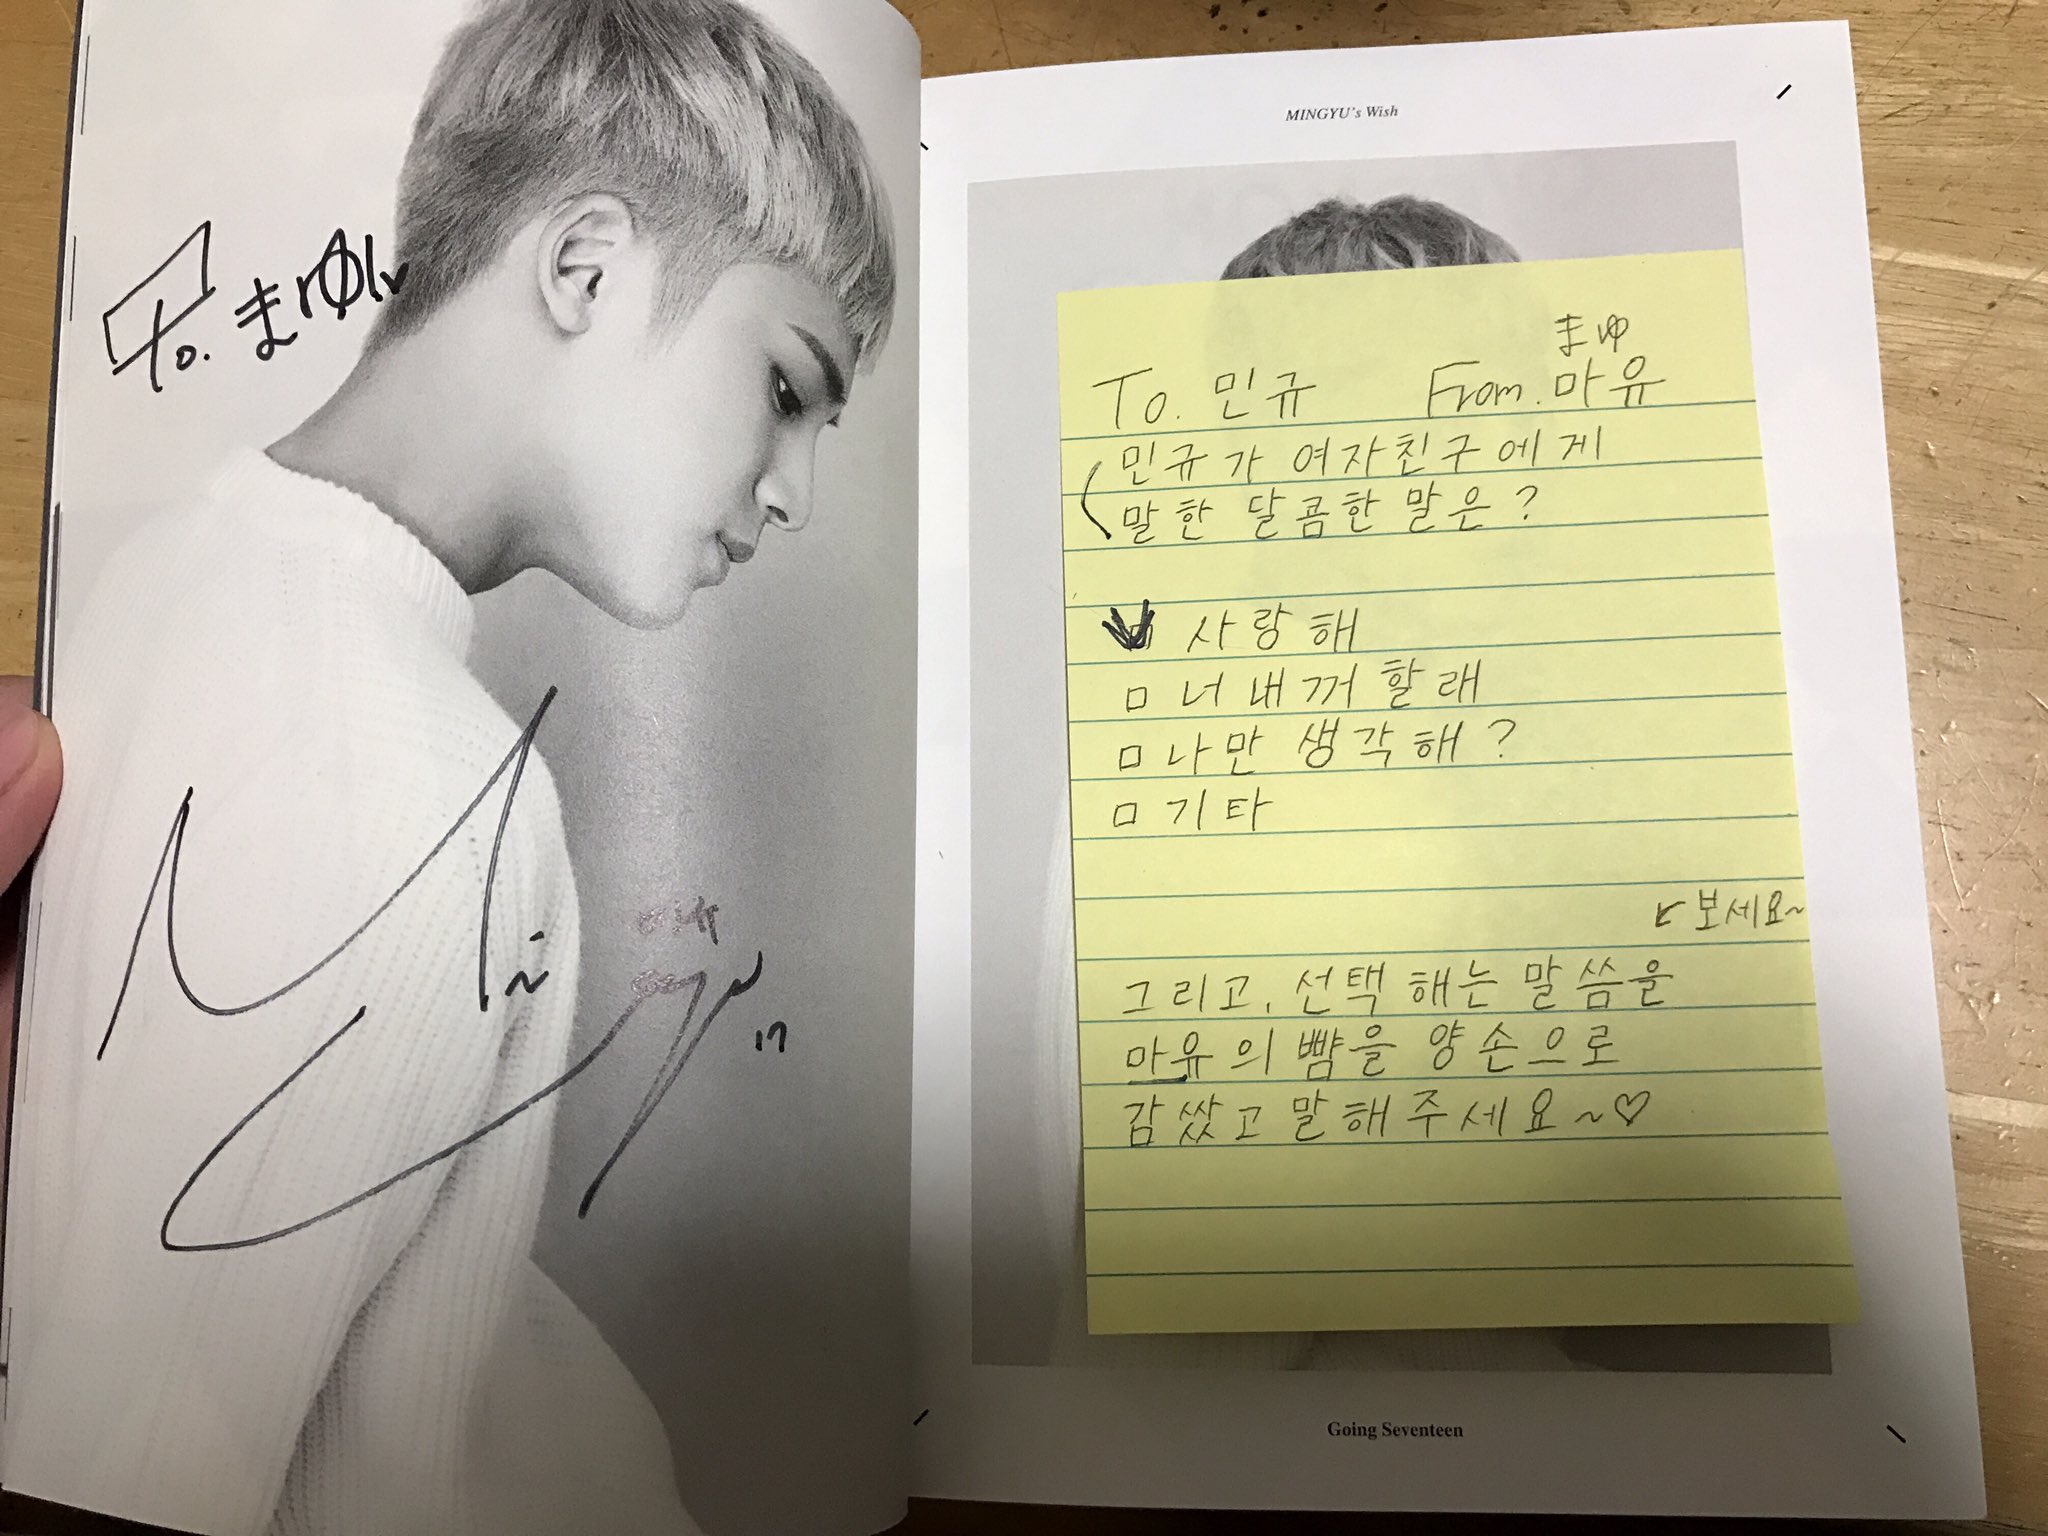 To. まゆ
Min
gyu
17
MINGYU's Wish
まゆ
To. 민규 From. 마유
민규가 여자친구에게
말한 달콤한 말은?
□ 사랑해
□ 너 내꺼 할래
□ 나만 생각해?
□ 기타
↙ 보세요~
그리고, 선택 해는 말씀을
마유의 뺨을 양손으로
감쌌고 말해주세요~♡
Going Seventeen